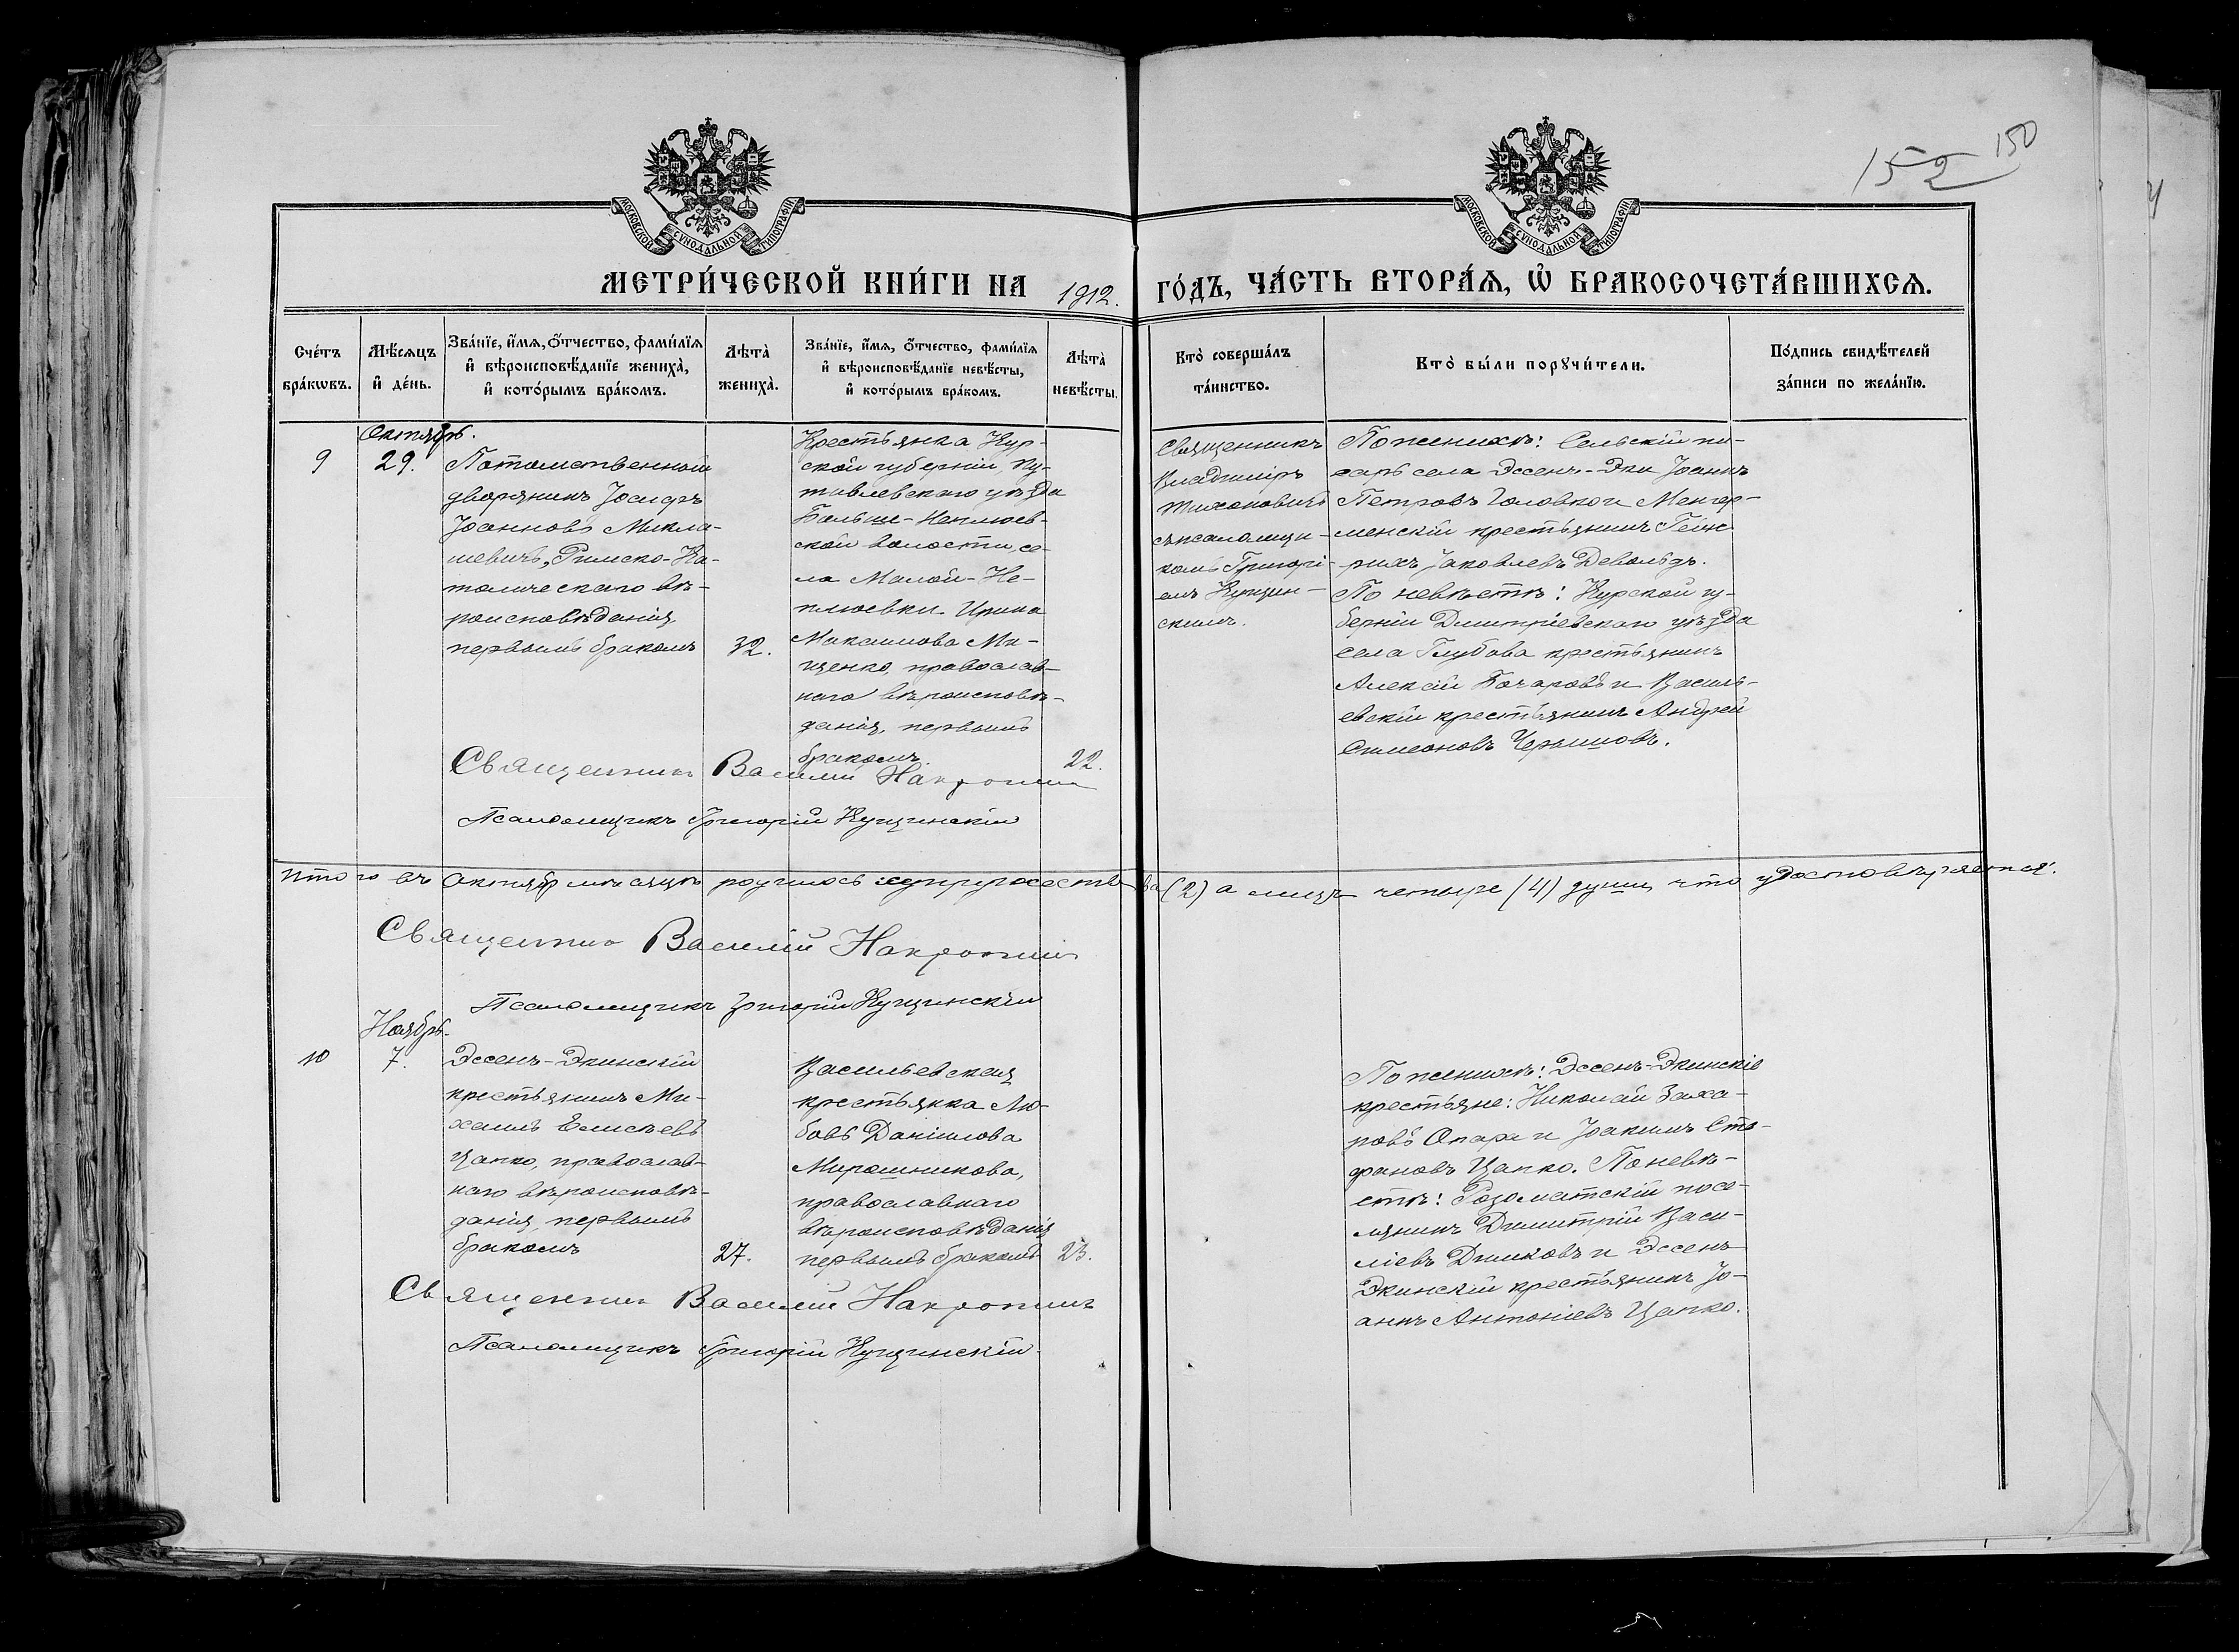 152 150
МОСКОВСКОЙ СѴНОДАЛЬНОЙ ТИПОГРАФІИ
МОСКОВСКОЙ СѴНОДАЛЬНОЙ ТИПОГРАФІИ
МЕТРИ́ЧЕСКОЙ КНИ́ГИ НА 1912. ГО́ДЪ, ЧА́СТЬ ВТОРА́Ѧ, Ѡ҆ БРАКОСОЧЕТА́ВШИХСѦ.
Сче́тъ
бра́кωвъ.
Мѣ́сѧцъ
и҆ де́нь.
Зва́нїе, и҆́мѧ, о҆́тчество, фами́лїѧ
и҆ вѣроисповѣ́данїе жениха̀,
и҆ кото́рымъ бра́комъ.
Лѣта̀
жениха̀.
Зва́нїе, и҆́мѧ, о҆́тчество, фами́лїѧ
и҆ вѣроисповѣ́данїе невѣ́сты,
и҆ кото́рымъ бра́комъ.
Лѣта̀
невѣ́сты.
Кто̀ соверша́лъ
та́инство.
Кто̀ бы́ли порꙋчи́тели.
По́дпись свидѣ́телей
за́писи по жела́нїю.
9
Октябрь.
29.
Потомственный
дворянинъ Іосифъ
Іоанновъ Микла-
шевичъ, Римско-Ка-
толическаго вѣ-
роисповѣданія,
первымъ бракомъ
32.
Крестьянка Кур-
ской губерніи, Пу-
тивлевскаго уѣзда
Больше-Неплюев-
ской волости, се-
ла Малой-Не-
плюевки Ирина
Максимова Ми-
щенко, православ-
наго вѣроисповѣ-
данія, первымъ
бракомъ.
22.
Священникъ
Владиміръ
Тихоновичъ
съ псаломщи-
комъ Григорі-
емъ Кущин-
скимъ.
По женихѣ: Сельскій пи-
сарь села Эссенъ-Эки Іоаннъ
Петровъ Головко и Менгер-
менскій крестьянинъ Гейн-
рихъ Іаковлевъ Девальдъ.
По невѣстѣ: Курской гу-
берніи Димитріевскаго уѣзда
села Глубова крестьянинъ
Алексій Бочаровъ и Василь-
евскій крестьянинъ Андрей
Симеоновъ Чернышовъ.
Священникъ Василій
Псаломщикъ Григорій Кущинскій
Итого въ Октябрѣ мѣсяцѣ супружества (2) а лицъ четыре (4) души, что удостовѣряется.
Священникъ Василій
Псаломщикъ Григорій Кущинскій
10
Ноябрь.
7.
Эссенъ-Экинскій
крестьянинъ Ми-
хаилъ Елисѣевъ
Цапко, православ-
наго вѣроисповѣ-
данія, первымъ
бракомъ
27.
Васильевская
крестьянка Лю-
бовь Даніилова
Мирошникова,
православнаго
вѣроисповѣданія
первымъ бракомъ
23.
По женихѣ: Эссенъ-Экинскіе
крестьяне: Николай Заха-
ровъ Опара и Іоакимъ Сте-
фановъ Цапко. По невѣ-
стѣ: посе-
лянинъ Димитрій Васи-
ліевъ Дашковъ и Эссенъ
Экинскій крестьянинъ Іо-
аннъ Антоніевъ Цапко.
Священникъ Василій
Псаломщикъ Григорій Кущинскій.